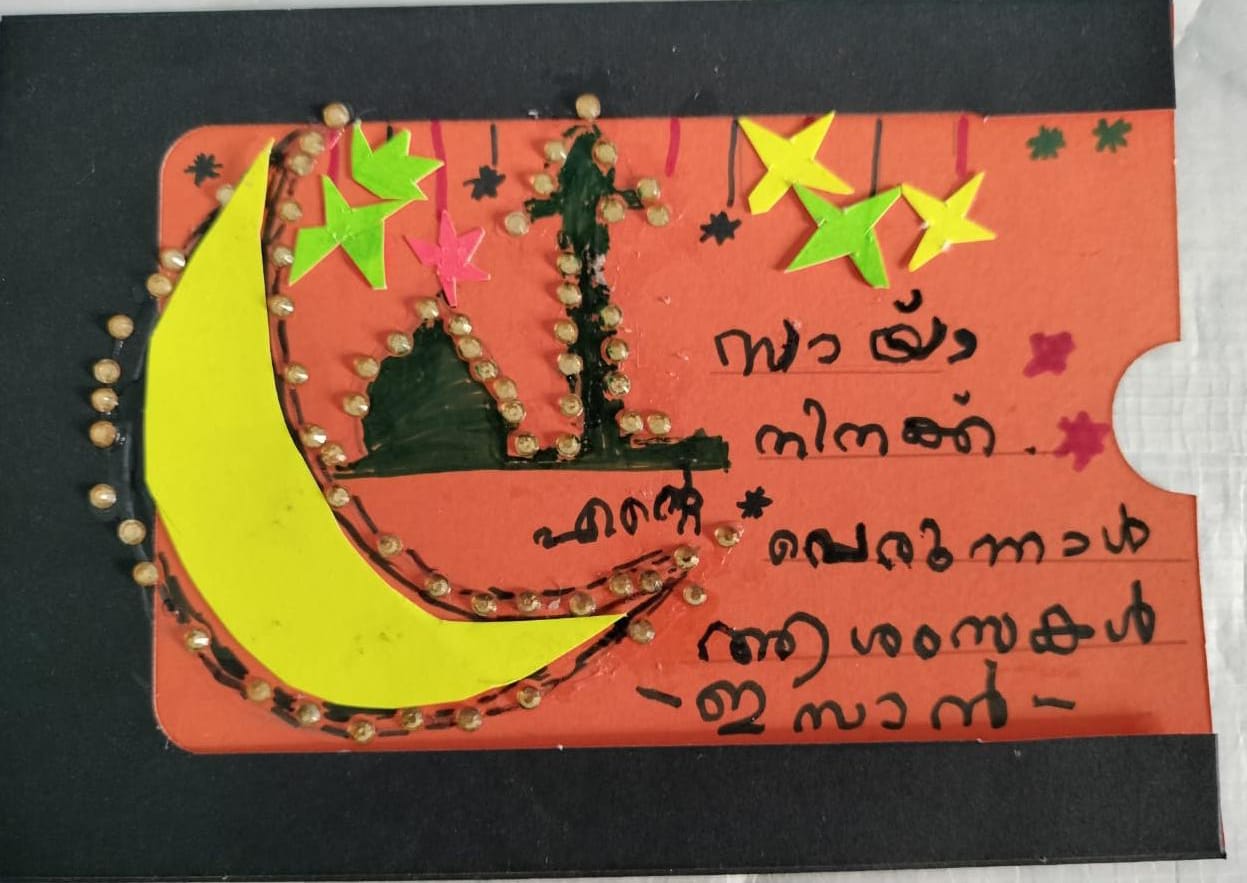 നിനക്ക് .
എന്റെ പെരുന്നാൾ
ആശംസകൾ
- ഇസാൻ -